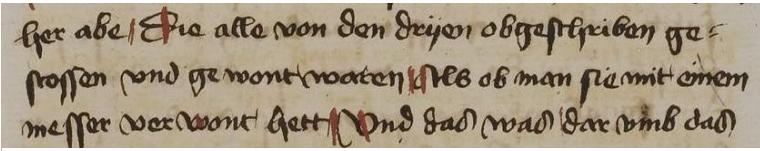 her abe / Sie alle von den drÿen obgeschriben ge=
stossen vnd gewont waren / Als ob man sie mit einem
messer verwont hett / Vnd das was dar vmb das